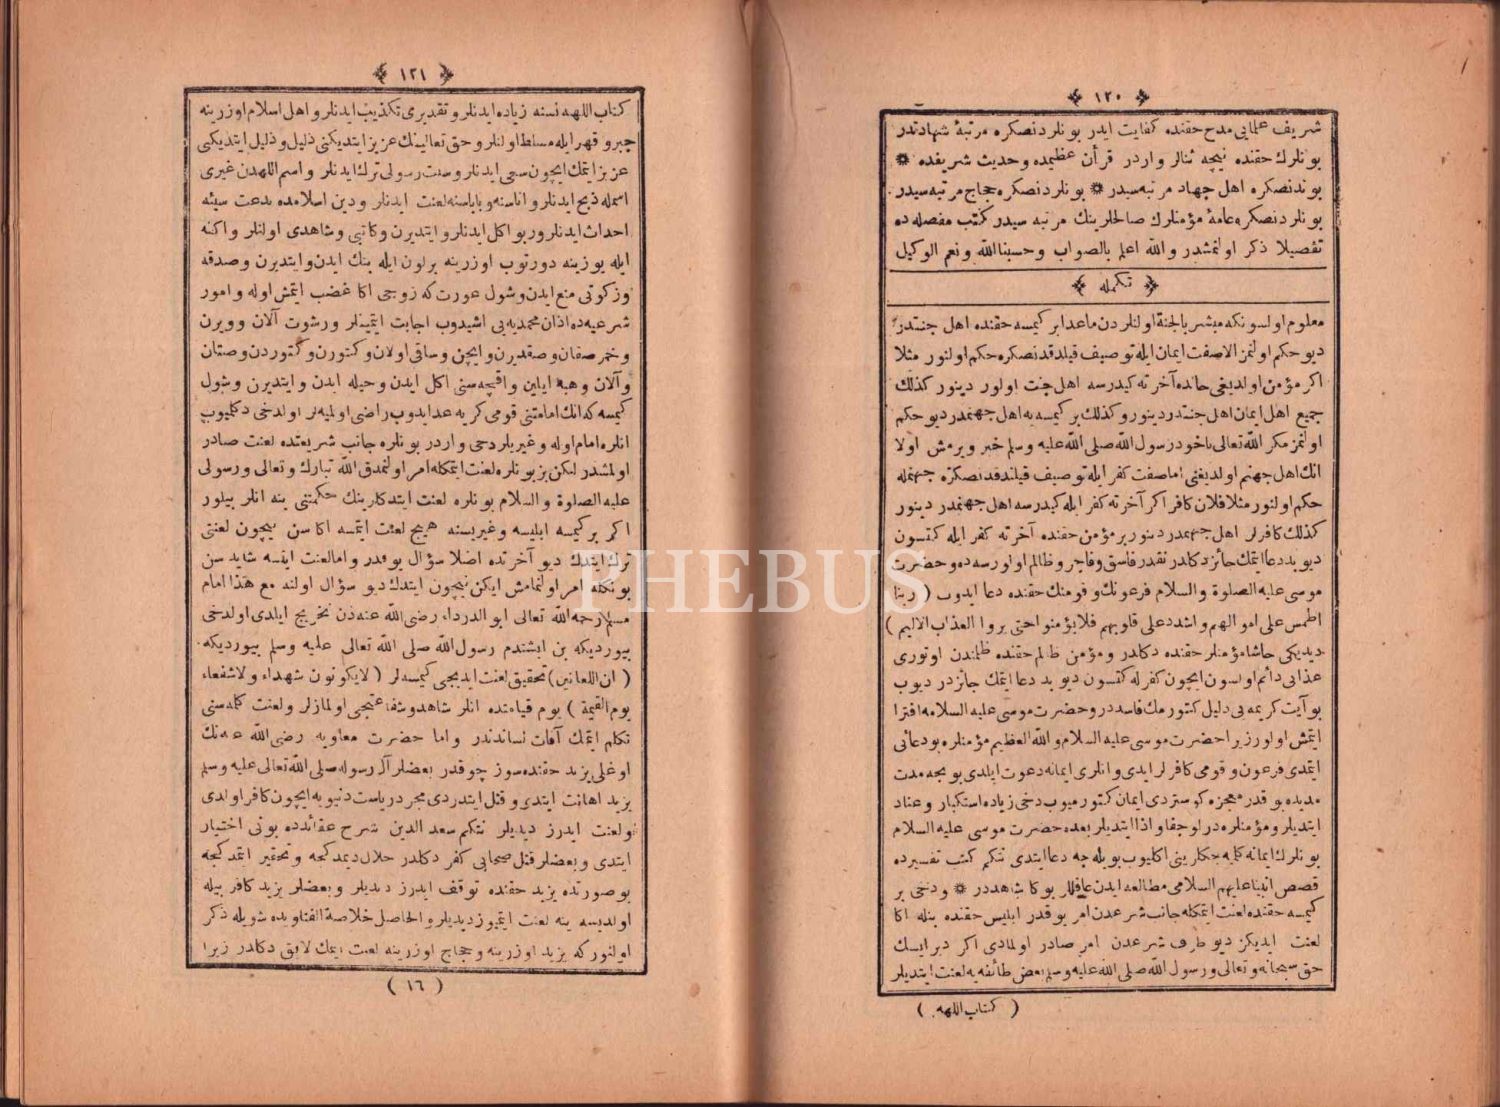 ﴿ ١٢٠ ﴾
شريف علمايی مدح حقنده كفايت ايدر بونلردنصكره مرتبۀ شهادتدر
بونلرك حقنده نيچه ثنالر واردر قرأن عظيمده وحديث شريفده *
بوندنصكره اهل جهاد مرتبه سيدر * بونلردنصكره حجاج مرتبه سيدر
بونلردنصكره عامۀ مؤمنلرك صالحلرينك مرتبه سيدر كتب مفصله ده
تفصيلا ذكر اولنمشدر والله اعلم بالصواب وحسبنا الله ونعم الوكيل
﴿ تكمله ﴾
معلوم اولسونكه مبشر بالجنة اولنلردن ماعدا بر كيمسه حقنده اهل جنتدر
ديو حكم اولنمز الا صفت ايمان ايله توصيف قيلندقدنصكره حكم اولنور مثلا
اكر مؤمن اولديغی حالده آخرته كيدرسه اهل جنت اولور دينور كذلك
جميع اهل ايمان اهل جنتدر دينور وكذلك بر كيمسه يه اهل جهنمدر ديو حكم
اولنمز مكر الله تعالی ياخود رسول الله صلی الله عليه وسلم خبر ويرمش اولا
انك اهل جهنم اولديغنی اما صفت كفر ايله توصيف قيلندقدنصكره جهنمله
حكم اولنور مثلا فلان كافر اكر آخرته كفر ايله كيدرسه اهل جهنمدر دينور
كذلك كافرلر اهل جهنمدر دينور بر مؤمن حقنده آخرته كفر ايله كتسون
ديو بددعا ايتمك جائز دكلدر نقدر فاسق وفاجر وظالم اولورسه ده وحضرت
موسی عليه الصلوة والسلام فرعونك وقومنك حقنده دعا ايدوب ( ربنا
اطمس علی اموالهم واشدد علی قلوبهم فلا يؤمنوا حتی يروا العذاب الاليم )
ديديكی حاشا مؤمنلر حقنده دكلدر ومؤمن ظالم حقنده ظلمندن اوتوری
عذابی دائم اولسون ايچون كفرله كتسون ديو بددعا ايتمك جائزدر ديوب
بو آيت كريمه يی دليل كتورمك فاسددر وحضرت موسی عليه السلامه افترا
ايتمش اولور زيرا حضرت موسی عليه السلام والله العظيم مؤمنلره بو دعائی
ايتمدی فرعون وقومی كافرلر ايدی وانلری ايمانه دعوت ايلدی بونجه مدت
مديده بوقدر معجزه كوستردی ايمان كتورميوب دخی زياده استكبار وعناد
ايتديلر ومؤمنلره درلو جفا واذا ايتديلر بعده حضرت موسی عليه السلام
بونلرك ايمانه كلميه جكلرينی اكليوب بويله جه دعا ايتدی نتكم كتب تفسيرده
قصص انبيا عليهم السلامی مطالعه ايدن عاقللر بوكا شاهددر * ودخی بر
كيمسه حقنده لعنت ايتمكله جانب شرعدن امر يوقدر ابليس حقنده بيله اكا
لعنت ايديكز ديو طرف شرعدن امر صادر اولمادی اكر ديرايسك
حق سبحانه وتعالی ورسول الله صلی الله عليه وسلم بعض طائفه يه لعنت ايتديلر
( كتاب اللهه )
﴿ ١٢١ ﴾
كتاب اللهه نسنه زياده ايدنلر وتقديری تكذيب ايدنلر واهل اسلام اوزرينه
جبر وقهر ايله مسلط اولنلر وحق تعالينك عزيز ايتديكنی ذليل وذليل ايتديكی
عزيز ايتمك ايچون سعی ايدنلر وسنت رسولی ترك ايدنلر واسم اللهدن غيری
اسمله ذبح ايدنلر واناسنه وباباسنه لعنت ايدنلر ودين اسلامده بدعت سيئه
احداث ايدنلر وربو اكل ايدنلر وايتديرن وكاتبی وشاهدی اولنلر واكنه
ايله يوزينه دورتوب اوزرينه برلون ايله بنك ايدن وايتديرن وصدقه
وزكوتی منع ايدن وشول عورت كه زوجی اكا غضب ايتمش اوله وامور
شرعيه ده اذان محمديه يی اشيدوب اجابت ايتمينلر ورشوت آلان وويرن
وخمر صقان وصقديرن وايچن وساقی اولان وكتورن وكتوردن وصتان
وآلان وهبه ايلين واقچه سنی اكل ايدن وحيله ايدن وايتديرن وشول
كيمسه كه انك امامتنی قومی كريه عد ايدوب راضی اولميه لر اولدخی دكليوب
انلره امام اوله وغيريلر دخی واردر بونلره جانب شريعتده لعنت صادر
اولمشدر لكن بز بونلره لعنت ايتمكله امر اولنمدق الله تبارك وتعالی ورسولی
عليه الصلوة والسلام بونلره لعنت ايتدكلرينك حكمتنی ينه انلر بيلور
اكر بر كيمسه ابليسه وغيريسنه هيچ لعنت ايتمسه اكا سن نيچون لعنتی
ترك ايتدك ديو آخرتده اصلا سؤال يوقدر واما لعنت ايتسه شايد سن
بونكله امر اولنمامش ايكن نيچون ايتدك ديو سؤال اولنه مع هذا امام
مسلم رحمه الله تعالی ابو الدرداء رضی الله عنه دن تخريج ايلدی اولدخی
بيورديكه بن ايشتدم رسول الله صلی الله تعالی عليه وسلم بيورديكه
( ان اللعانين ) تحقيق لعنت ايديجی كيمسه لر ( لايكونون شهداء ولا شفعاء
يوم القيمة ) يوم قيامتده انلر شاهد وشفاعتجی اولمازلر ولعنت كلمه سنی
تكلم ايتمك آفات لساندندر واما حضرت معاويه رضی الله عنه نك
اوغلی يزيد حقنده سوز چوقدر بعضلر آل رسوله صلی الله تعالی عليه وسلم
يزيد اهانت ايتدی وقتل ايتدردی مجرد رياست دنيويه ايچون كافر اولدی
ولعنت ايدرز ديديلر نتكم سعد الدين شرح عقائدده بونی اختيار
ايتدی وبعضلر قتل صحابی كفر دكلدر حلال ديمدكجه وتحقير ايتمدكجه
بو صورتده يزيد حقنده توقف ايدرز ديديلر وبعضلر يزيد كافر بيله
اولديسه ينه لعنت ايتميوز ديديلر والحاصل خلاصة الفتاويده شويله ذكر
اولنور كه يزيد اوزرينه وحجاج اوزرينه لعنت ايتمك لايق دكلدر زيرا
( ١٦ )
PHEBUS